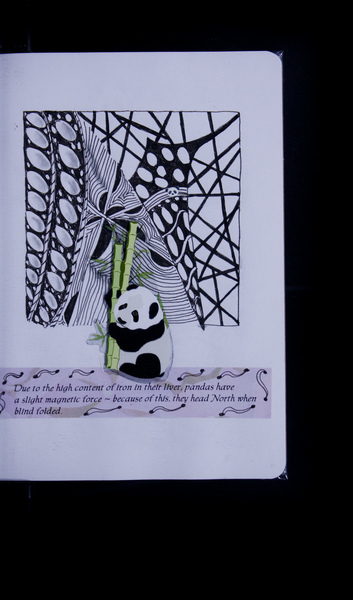 Due to the high content of iron in their liver, pandas have
a slight magnetic force – because of this, they head North when
blind folded.